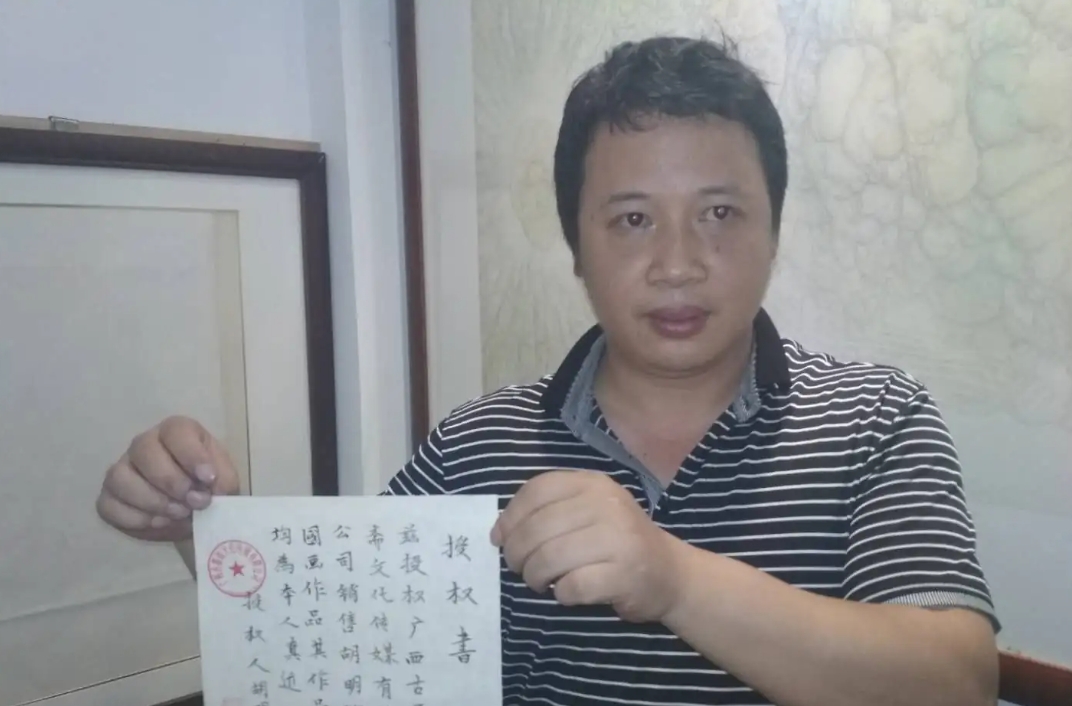 授权书
兹授权广西古
斋文化传媒有
公司销售胡明
國画作品其作品
均為本人真迹
授权人胡